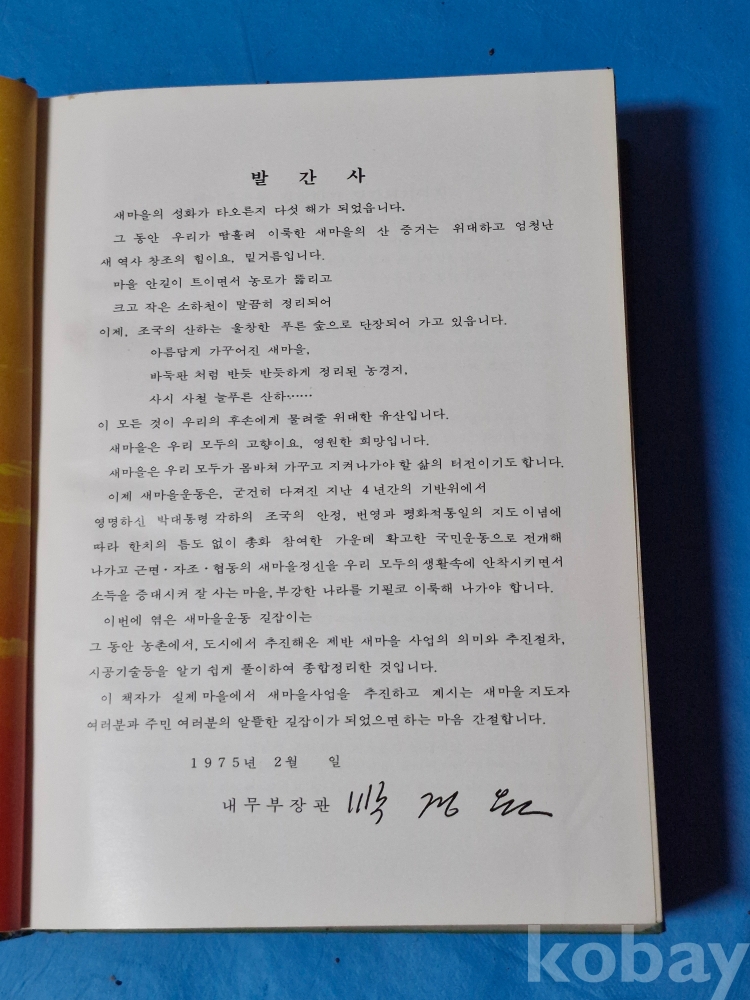 발 간 사
새마을의 성화가 타오른지 다섯 해가 되었읍니다.
그 동안 우리가 땀흘려 이룩한 새마을의 산 증거는 위대하고 엄청난
새 역사 창조의 힘이요, 밑거름입니다.
마을 안길이 트이면서 농로가 뚫리고
크고 작은 소하천이 말끔히 정리되어
이제, 조국의 산하는 울창한 푸른 숲으로 단장되어 가고 있읍니다.
아름답게 가꾸어진 새마을,
바둑판 처럼 반듯 반듯하게 정리된 농경지,
사시 사철 늘푸른 산하……
이 모든 것이 우리의 후손에게 물려줄 위대한 유산입니다.
새마을은 우리 모두의 고향이요, 영원한 희망입니다.
새마을은 우리 모두가 몸바쳐 가꾸고 지켜나가야 할 삶의 터전이기도 합니다.
이제 새마을운동은, 굳건히 다져진 지난 4년간의 기반위에서
영명하신 박대통령 각하의 조국의 안정, 번영과 평화적통일의 지도이념에
따라 한치의 틈도 없이 총화 참여한 가운데 확고한 국민운동으로 전개해
나가고 근면·자조·협동의 새마을정신을 우리 모두의생활속에 안착시키면서
소득을 증대시켜 잘 사는 마을, 부강한 나라를 기필코 이룩해 나가야 합니다.
이번에 엮은 새마을운동 길잡이는
그 동안 농촌에서, 도시에서 추진해온 제반 새마을 사업의 의미와 추진절차,
시공기술등을 알기 쉽게 풀이하여 종합정리한 것입니다.
이 책자가 실제 마을에서 새마을사업을 추진하고 계시는 새마을 지도자
여러분과 주민 여러분의 알뜰한 길잡이가 되었으면 하는 마음 간절합니다.
1975년 2월 일
내무부장관 박경원
kobay